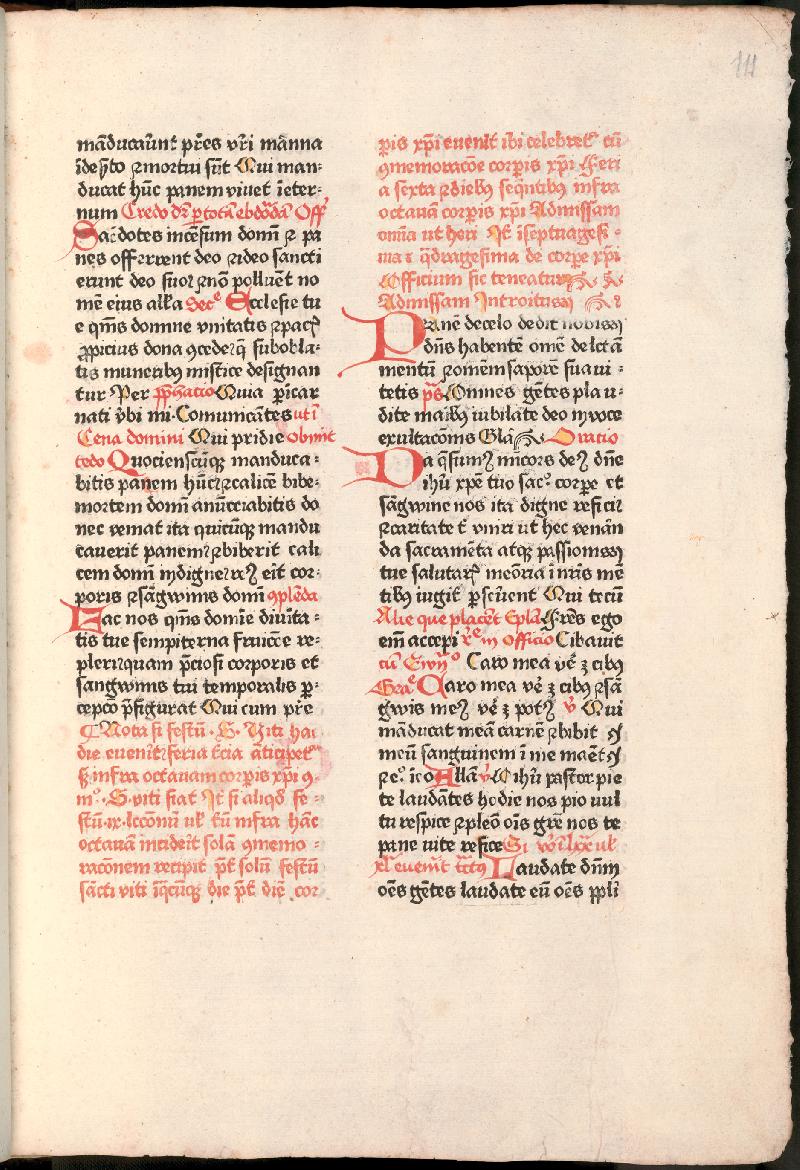 111
mãducaũnt p̃res vr̃i mãnna
ĩ deẜto ⁊ mortui sũt Qui man-
ducat hũc panem viuet ĩ eter-
num Credo dr̃ p totã ebdõdã Off̃
Sac̃dotes incẽsum domĩ ⁊ pa
nes offerrent deo ⁊ ideo sancti
erunt deo suo ⁊ nõ polluẽt no
mẽ eius alĩa Secͤ Ecclesie tu
e qm̃s domine vnitatis ⁊ pacꝭ
ꝓpicius dona ꝯcede q̃ sub obla-
tis muneribꝰ mistice designan
tur Per p̃fatio Quia p̃ icar
nati v̾bi mi Comunicãtes ut ĩ
Cena domini Qui pridie Obmĩt
tedo Quociensc̃ũqꝫ manduca-
bitis panem hũc ⁊ calicẽ bibe-
mortem domĩ anũctiabitis do
nec veniat ita quicũqꝫ mandu
cauerit panem ⁊ biberit cali
cem domĩ indigne reꝰ eit cor-
poris ⁊ sãgwinis domĩ ꝯplẽda
Fac nos qm̃s domĩe diuĩta-
tis tue sempiterna fruicõe re-
pleri quam p̃ciosi corporis et
sangwinis tui temporalis p̱-
cepcõ p̃figurat Qui cum p̃re
Nota si festũ S Viti hac
die euenit feria t̃cia ãticipet̾
sꝫ infra octauam corp̃is xp̃i ꝯ-
m̾ S viti fiat It̃ si aliqd̾ fe-
stũ ix lecconũ ul̾ tũ infra hãc
octauã inciderit solã ꝯmemo-
racõnem recipit p̃t solũ festũ
sãcti viti ĩ q̃cũqꝫ die p̃t diẽ cor
p̃is xp̃i euenit ibi celebret̾ cũ
ꝯmemoracõe corp̃is xp̃i Feri
a sexta ⁊ diebꝰ seq̃ntibꝰ infra
octauã corp̃is xp̃i Ad missam
om̃ia ut heri It̃ ĩ septuagesi-
ma ⁊ q̃dragesima de corp̃e xp̃i
Officium sic teneatur
Ad missam Introitus
Panẽ de celo dedit nobis
dñs habentẽ om̃e delctã
mentũ ⁊ om̃em saporẽ suaui-
tetis p̃s Omnes gẽtes plau-
dite maĩbꝰ iubilate deo ĩ voce
exultacõnis Glã Oratio
Da q̃sumꝰ micors deꝰ dñe
ihũ xp̃e tuo sac̾ corp̃e et
sãgwine nos ita digne refici
⁊ caritate t̃ vniri ut hec venãn
da sacramẽta atqꝫ passionis
tue salutarꝭ meõria ĩ nr̃is mẽ
tibꝰ iugit̾ p̱seuent Qui tecũ
Alie que placẽt Epl̃a Fr̃es ego
em̃ accepi reͤ in officio Cibauit
cũ Ewg̃º Caro mea vẽ ꝫ cibꝰ
Graͤ Caro mea vẽ ꝫ cibꝰ ⁊ sã
gwis meꝰ vẽ ꝫ potꝰ v̾ Qui
mãducat meã carnẽ ⁊ bibit
meũ sanguinem ĩ me maẽt
⁊ eº ĩ eo Allã v̾ O ihũ pastor pie
te laudãtes hodie nos pio uul
tu respice ⁊ pleõ oĩs gre nos te
pane uite refice Si vo lxx ul̾
xl euenit̾ tctꝰ Laudate dñm
oẽs gẽtes laudate eũ oẽs ppl̃i